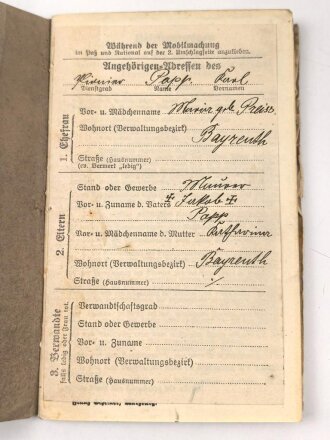 Während der Mobilmachung
im Paß und National auf der 2. Umschlagseite anzukleben.
Angehörigen-Adressen des
Pionier Popp Karl
Dienstgrad Name Vornamen
1. Ehefrau
Vor- u. Mädchenname Maria geb.
Wohnort (Verwaltungsbezirk) Bayreuth
Straße (Hausnummer)
(ev. Vermerk „ledig“)
2. Eltern
Stand oder Gewerbe Maurer
Vor- u. Zuname d. Vaters ✝ Jakob ✝
Popp
Vor- u. Mädchenname d. Mutter Katharina
Wohnort (Verwaltungsbezirk) Bayreuth
Straße (Hausnummer)
3. Verwandte
falls ledig oder Frau tot.
Verwandtschaftsgrad
Stand oder Gewerbe
Vor- u. Zuname
Wohnort (Verwaltungsbezirk)
Straße (Hausnummer)